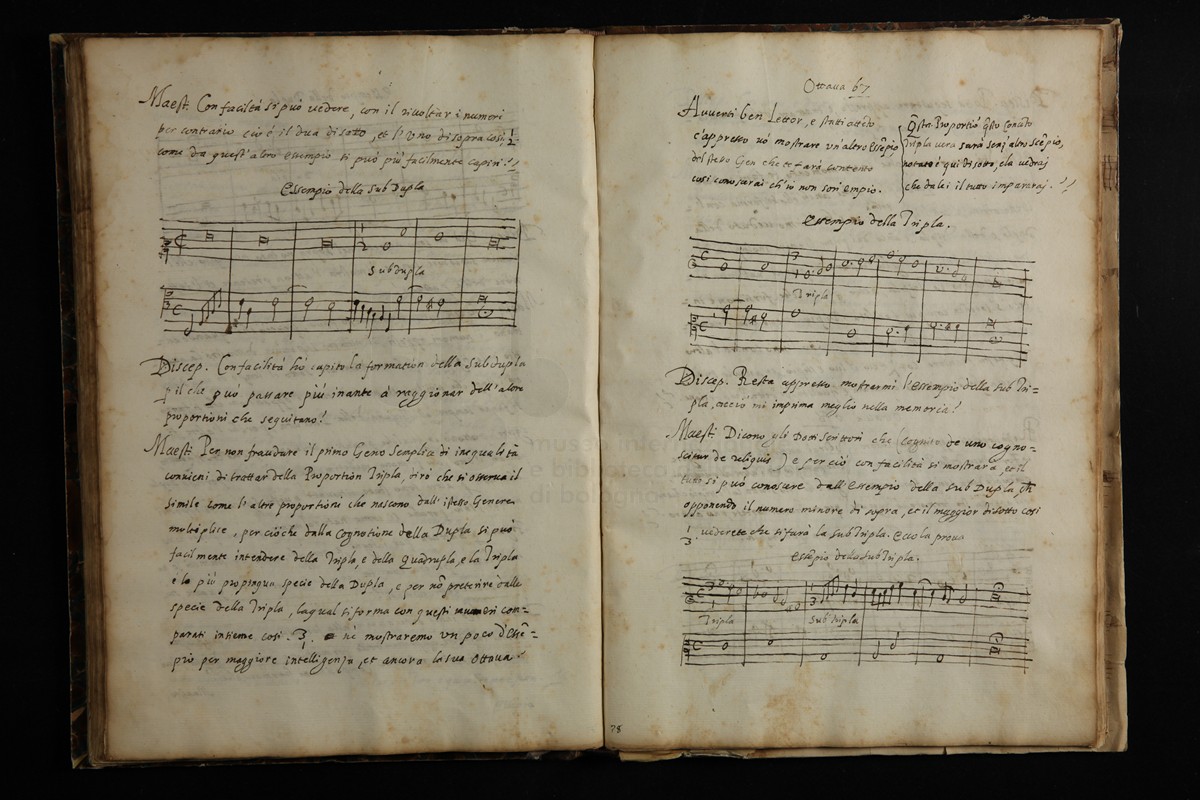 Maest. Con facilità si può vedere, con il rivoltar i numeri
per contrario cioè il dua di sotto, et l'Uno di sopra così, 1/2
come da quest'altro essempio si può più facilmente capire.
Essempio della Sub Dupla
1
2
Subdupla
Discep. Con facilità hò capito la formation della Subdupla
p il che può passare più inante à raggionar dell'altre
proportioni che seguitano.
Maest. Per non fraudare il primo Geno Semplice di inequalità
convieni di trattar della Proportion Tripla, dirò che si osserva il
simile come l'altre proportioni che nascono dall'istesso Genere
multiplice, per ciòche dalla Cognitione della Dupla si può
facilmente intendere della Tripla, e della Quadrupla, e la Tripla
è la più propinqua specie della Dupla, e per nõ preterire dalle
specie della Tripla, laqual si forma con questi numeri com=
parati insieme così. 3/1. ne mostraremo un poco d'Essẽ=
pio per maggiore intelligenza, et ancora la sua Ottava.
78
Ottava 67
Avverti ben Lettor, e stati attẽto
c'appresso vò mostrare un'altro Essẽpio
del stesso Gen che te farà contento
così conoscerai ch'io non son'empio.
Q̃sta Proportiõ q̃sto Concẽto
Tripla vera sarà senz'altro scẽpio,
notate i qui di sotto, e la vedrai
che da lei il tutto impararai.
Essempio della Tripla.
3
1
Tripla
Discep. Resta appresso mostrarmi l'essempio della sub Tri=
pla, acciò mi imprima meglio nella memoria.
Maest. Dicono gli Dotti Scrittori che (Cognito de uno cogno=
scitur de reliquis) e per ciò con facilità si mostrarà, et il
tutto si può conoscere dall'Essempio della Sub Dupla,
opponendo il numero minore di sopra, et il maggior di sotto così
1/3 vederete che si farà la Sub Tripla. Ecco la prova
Essẽpio della Sub Tripla.
3
1
Tripla
1
3
Sub tripla